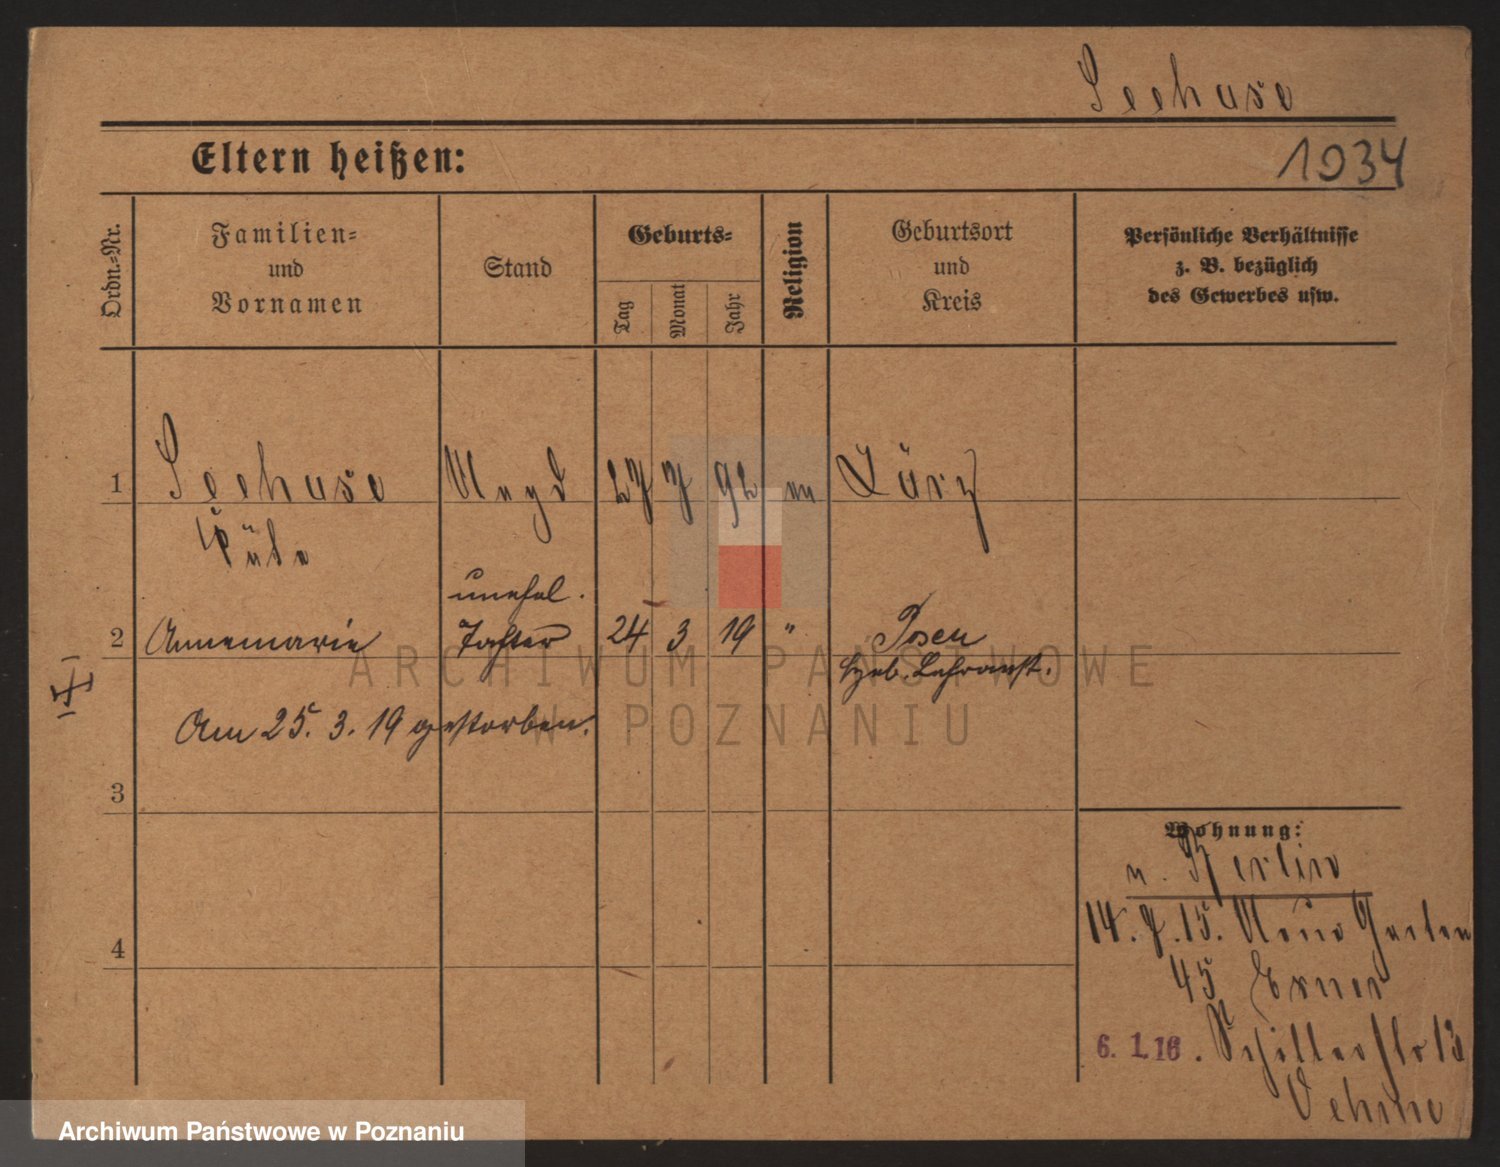 Seehuse
Eltern heißen:
1934
Ordn.-Nr.
Familien-
und
Vornamen
Stand
Geburts-
Tag
Monat
Jahr
Religion
Geburtsort
und
Kreis
Persönliche Verhältnisse
z. B. bezüglich
des Gewerbes usw.
1 Seehuse Magd 27 7 92 ev
unehel.
2 Annemarie Tochter 24 3 19 " Posen
Heb. Lehranst.
Am 25. 3. 19 gestorben.
3
4
Wohnung:
n. Berlin
14. 9. 15. Neue Garten
45 Exner
6. 1. 16. Schillerstr 13
Oehme
ARCHIWUM PAŃSTWOWE
W POZNANIU
Archiwum Państwowe w Poznaniu